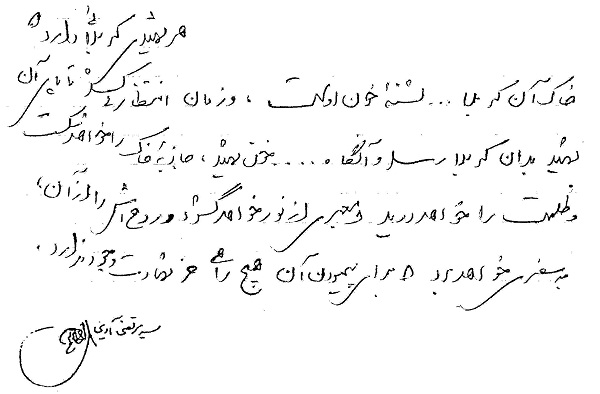 هر شهیدی کربلائی دارد که
خاک آن کربلا ... تشنهٔ خون اوست ، و زمان انتظار می‌کشد تا پای آن
شهید بدان کربلا رسد و آنگاه ..... خون شهید ، جاذبهٔ خاک را خواهد شکست
و ظلمت را خواهد درید و معبری از نور خواهد گشود و روحش را از آن ،
به سفری خواهد برد که برای پیمودن آن هیچ راهی جز شهادت وجود ندارد .
سید مرتضی آوینی